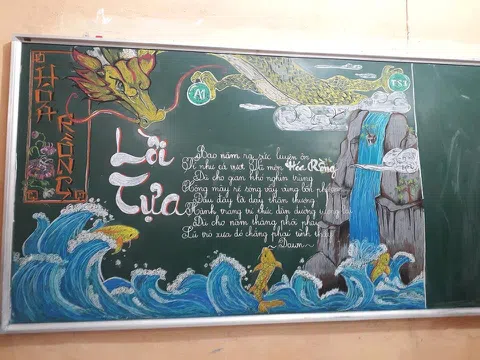 HÓA
RỒNG
A1
Lời
Tựa
Bao năm ra sức luyện ôn
Ví như cá vượt Vũ môn Hóa Rồng
Dù cho gian khó nghìn trùng
Hóng mây rẽ sóng vẫy vùng bốn phương
Đâu đây là dạy thân thương
Hành trang tri thức dẫn đường tương lai
Dù cho năm tháng phôi phai
Lũ trò xưa đó chẳng phai tình thầy
~ Dawn ~